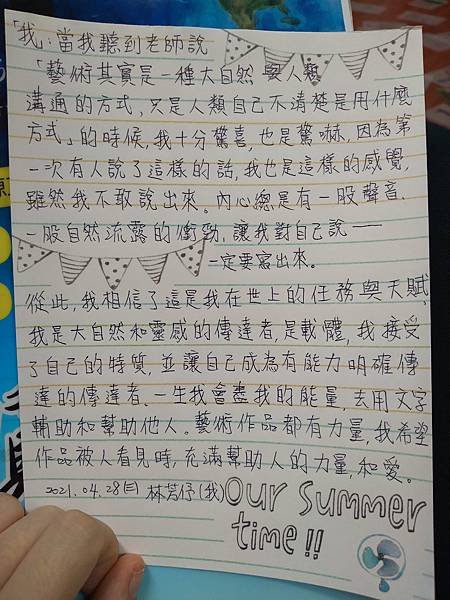 「我」:當我聽到老師說
「藝術其實是一種大自然與人類
溝通的方式,只是人類自己不清楚是用什麼
方式」的時候,我十分驚喜,也是驚嚇,因為第
一次有人說了這樣的話,我也是這樣的感覺,
雖然我不敢說出來。內心總是有一股聲音、
一股自然流露的衝勁,讓我對自己說——
一定要寫出來。
從此,我相信了這是我在世上的任務與天賦,
我是大自然和靈感的傳達者,是載體,我接受
了自己的特質,並讓自己成為有能力明確傳
達的傳達者、一生我會盡我的能量,去用文字
輔助和幫助他人。藝術作品都有力量,我希望
作品被人看見時,充滿幫助人的力量,和愛。
2021.04.28(三) 林芳伃(我)
Our Summer
time!!